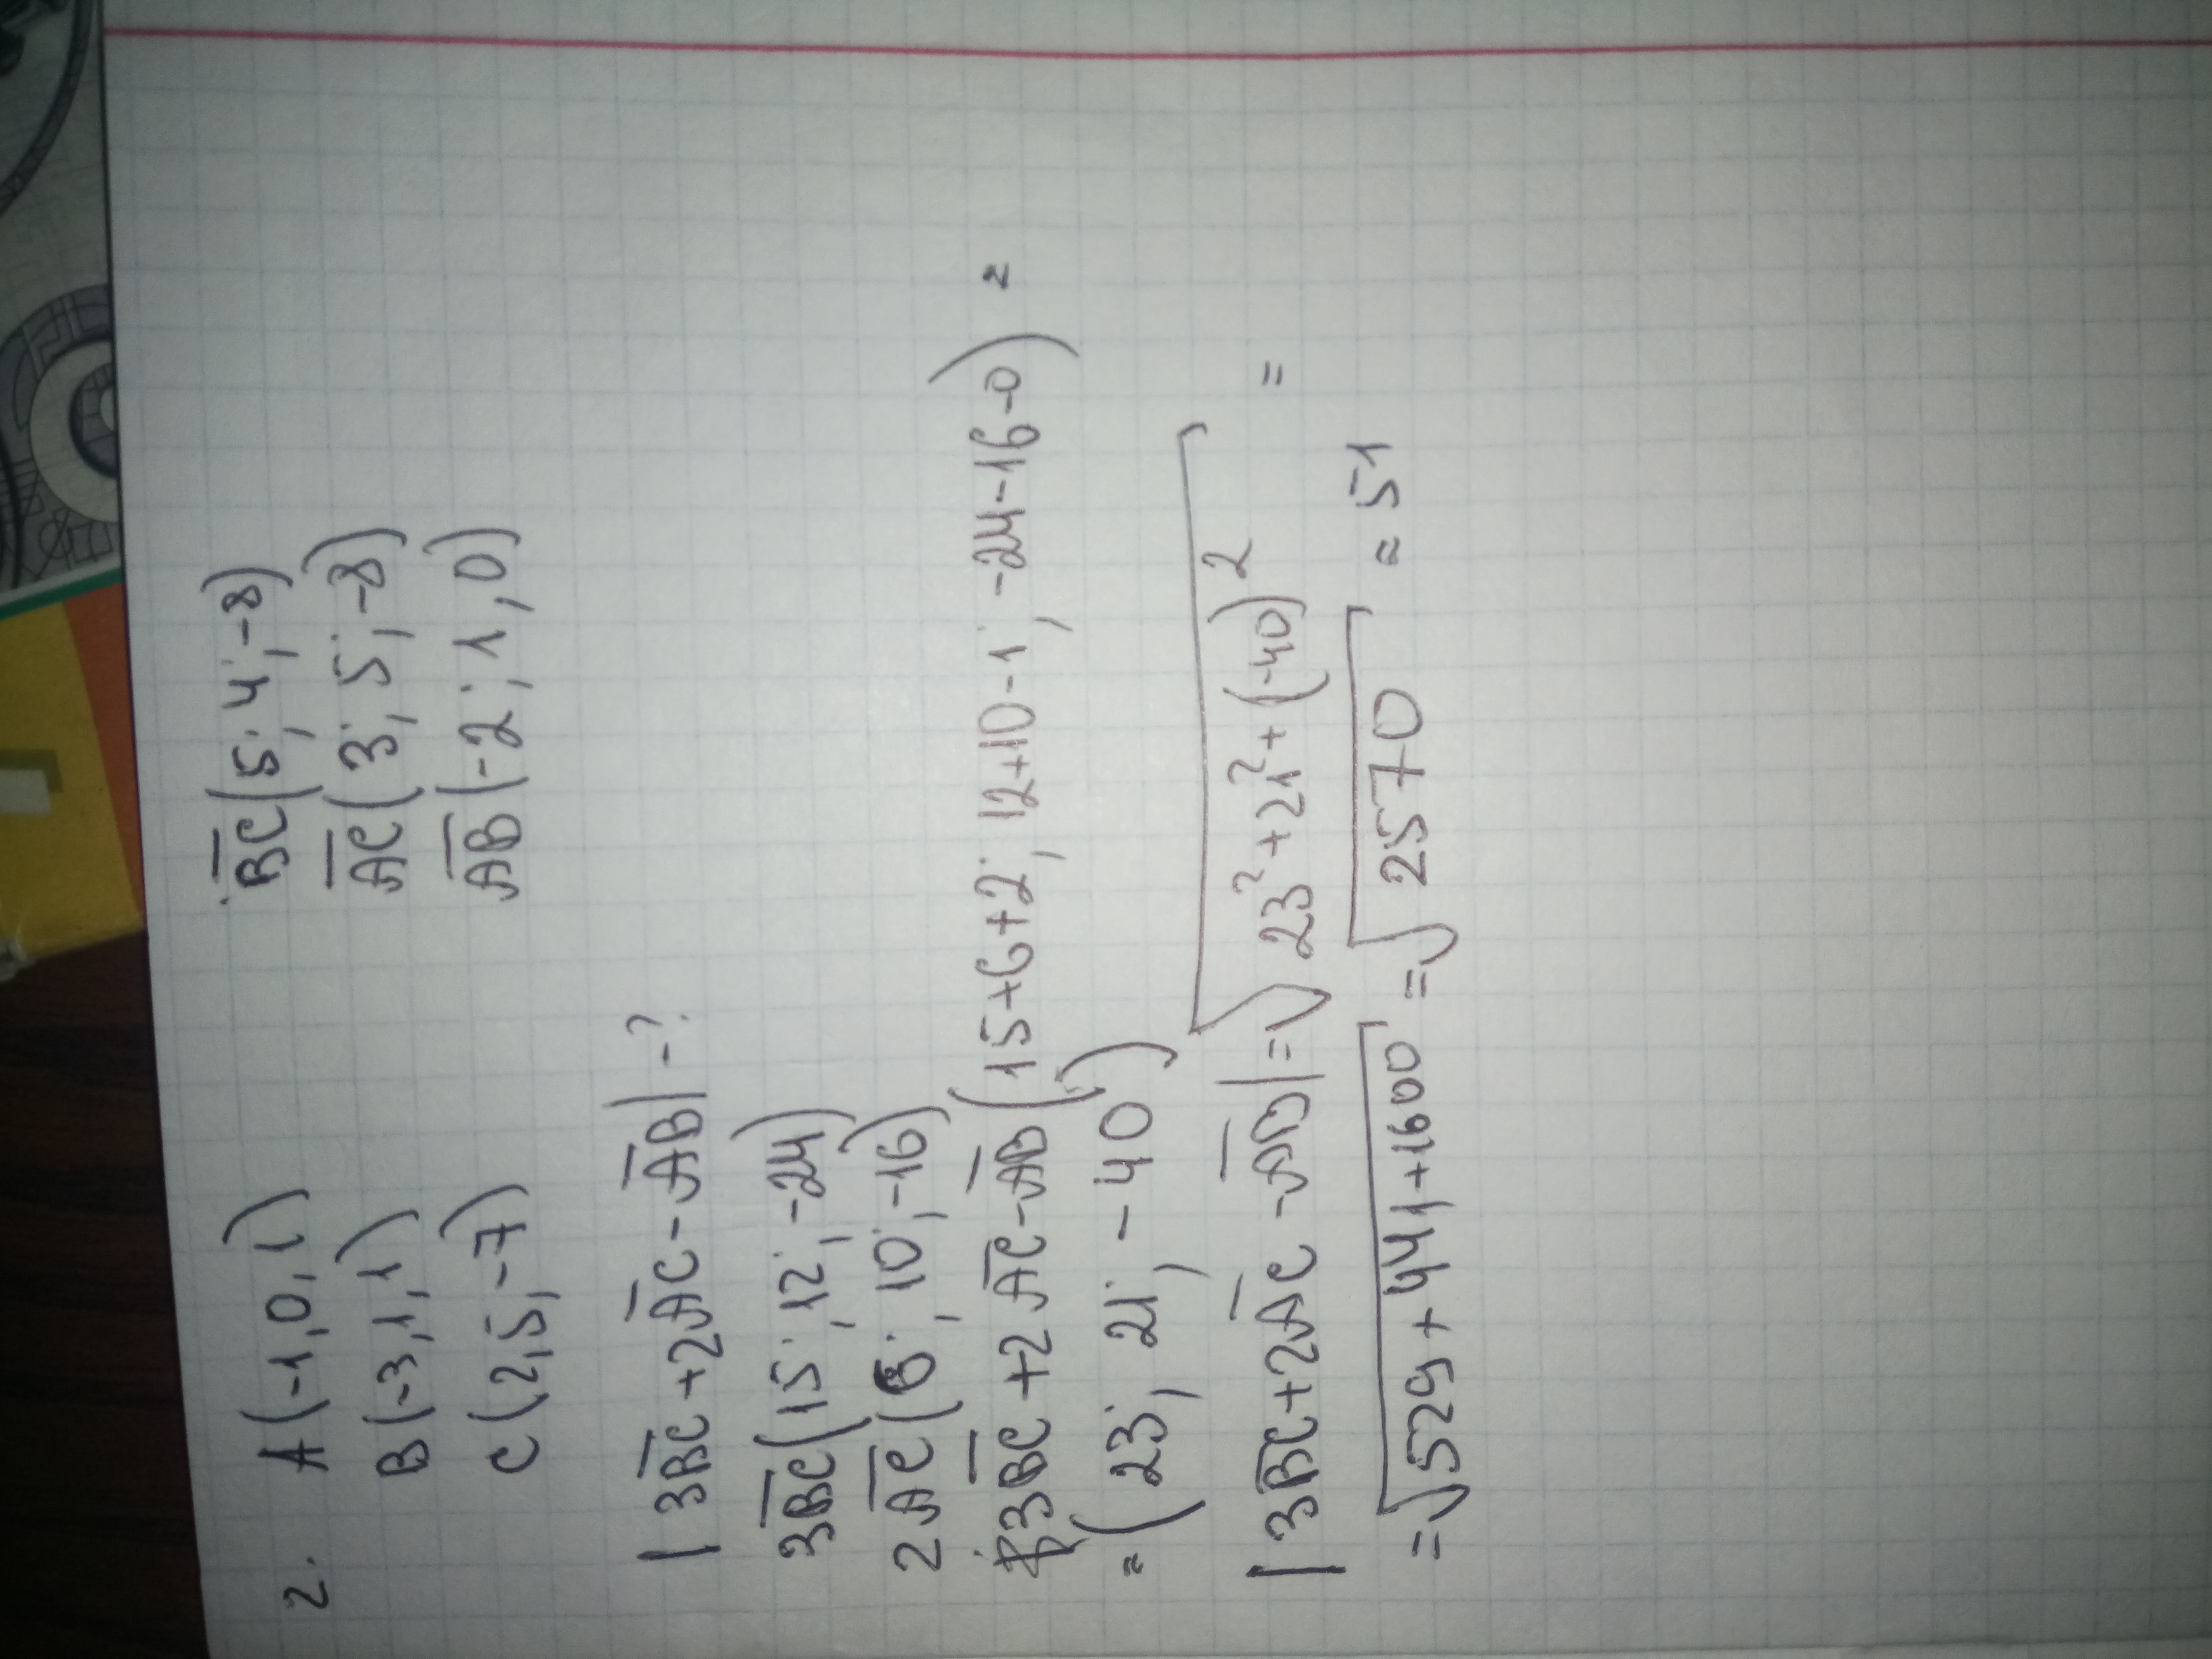 2. A(-1,0,1) BC(5;4;-8)
B(-3,1,1) AC(3;5;-8)
C(2,5,-7) AB(-2;1,0)
|3BC+2AC-AB|-?
3BC(15;12;-24)
2AC(6;10;-16)
3BC+2AC-AB(15+6+2;12+10-1;-24-16-0) =
=(23;21;-40)
|3BC+2AC-AB|=√23²+21²+(-40)² =
=√529+441+1600 =√2570 ≈ 51